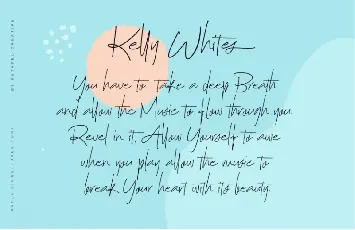 Kelly Whites
You have to Take a deep Breath
and allow the Music to flow through you.
Revel in it, Allow Yourself to awe
when you play allow the music to
break Your heart with its beauty